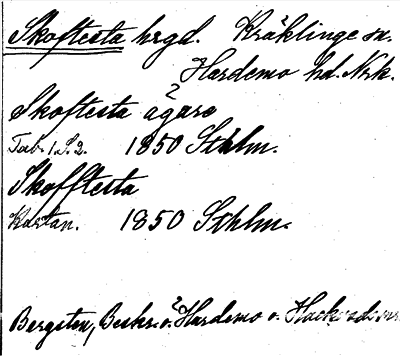 Skoftesta hrgd. Kräklinge sn.
Hardemo hd. Nrk.
Skoftesta ägare
Tab. 1. S. 2. 1850 Sthlm.
Skofftesta
Kartan. 1850 Sthlm.
Bergsten, Beskr. o. Hardemo o.